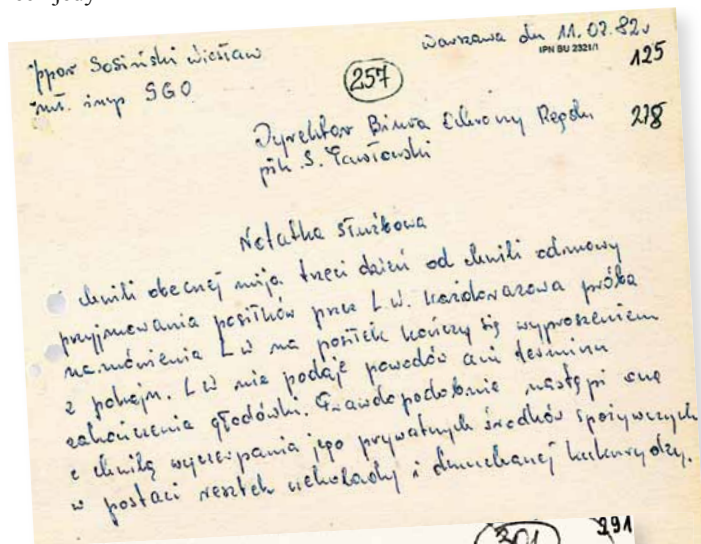 ppor Sosiński Wiesław
Warszawa dn 11.02.82r
IPN BU 2321/1
125
mł. insp SGO
257
Dyrektor Biura Ochrony Rządu
278
płk. S.
Notatka służbowa
chwili obecnej mija trzeci dzień od chwili odmowy
przyjmowania posiłków przez L.W. każdorazowa próba
namówienia LW na posiłek kończy się wyproszeniem
z pokoju. LW nie podaje powodów ani terminu
zakończenia głodówki. Prawdopodobnie nastąpi ona
z chwilą wyczerpania jego prywatnych środków spożywczych
w postaci resztek czekolady i dmuchanej kukurydzy.
301
291